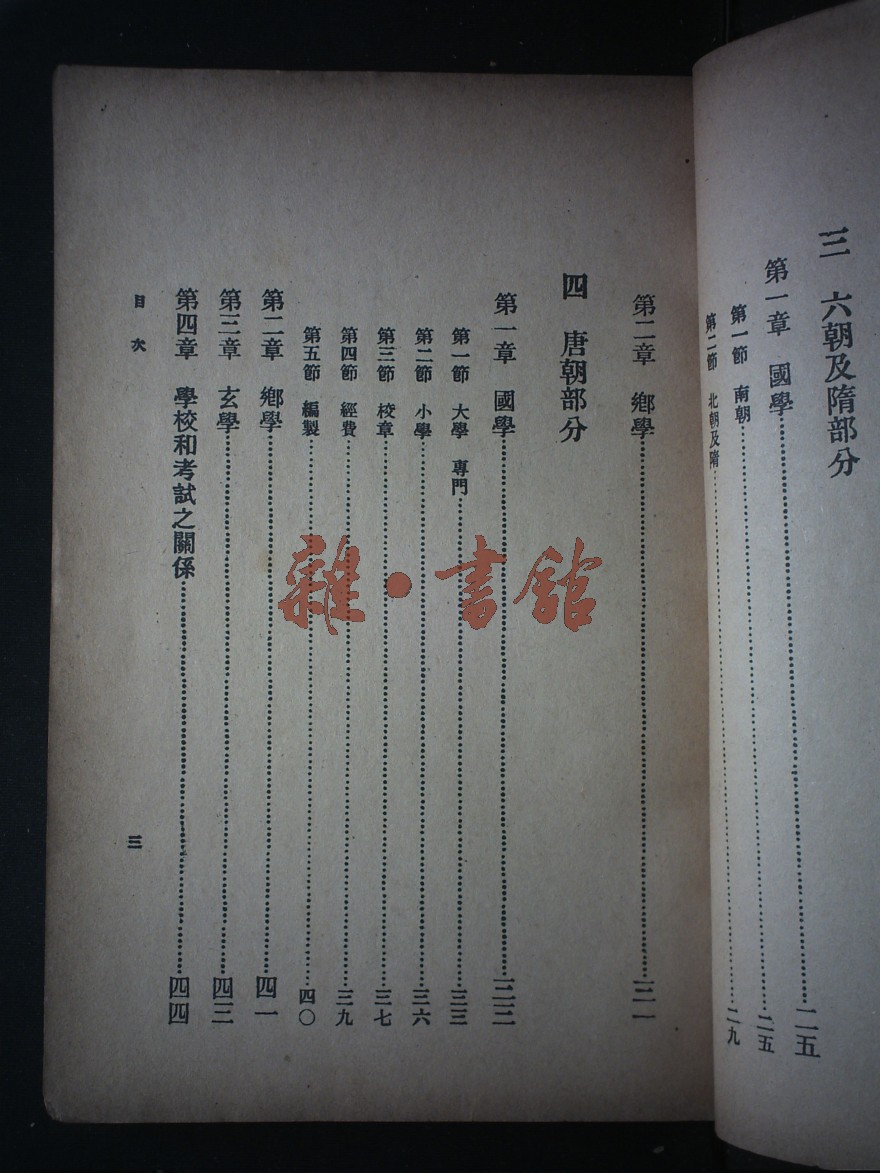 三 六朝及隋部分
第一章 國學……二五
第一節 南朝……二五
第二節 北朝及隋……二九
第二章 鄉學……三一
四 唐朝部分
第一章 國學……三三
第一節 大學 專門……三三
第二節 小學……三六
第三節 校章……三七
第四節 經費……三九
第五節 編製……四〇
第二章 鄉學……四一
第三章 玄學……四三
第四章 學校和考試之關係……四四
目次
三
雜·書館